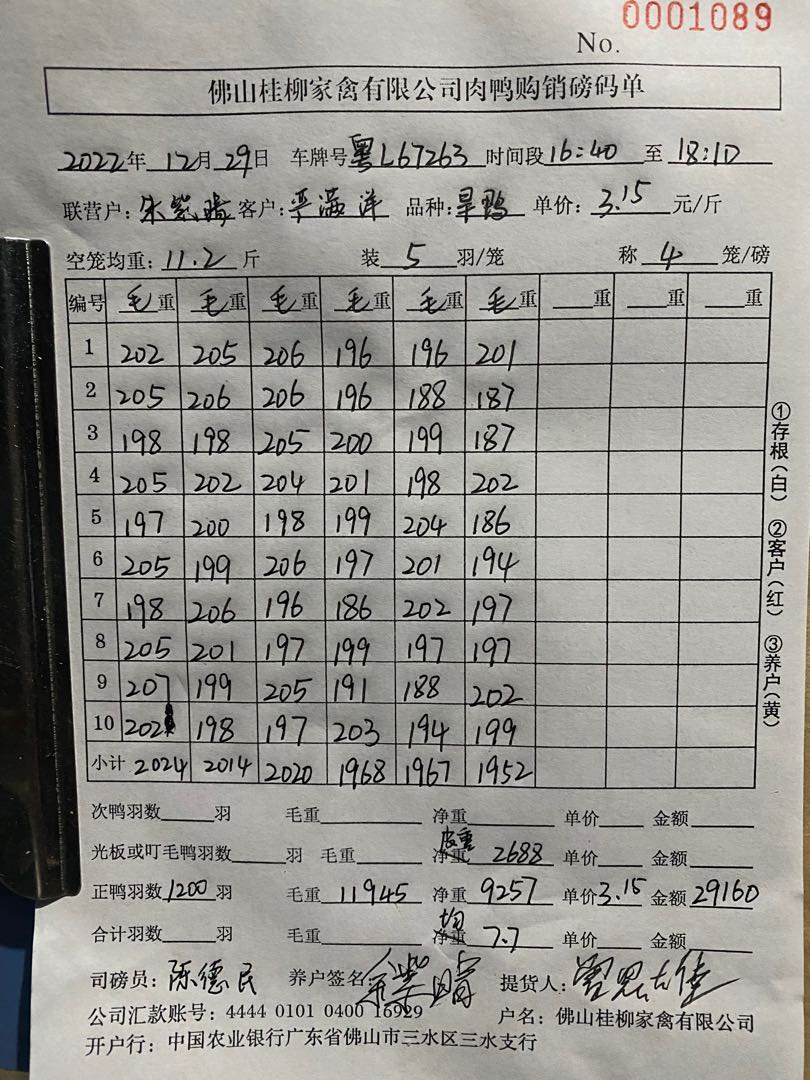 0001089
No.
佛山桂柳家禽有限公司肉鸭购销磅码单
2022年 12月 29日 车牌号粤L67263 时间段16:40 至 18:10
联营户: 客户: 满洋 品种: 旱鸭 单价: 3.15 元/斤
空笼均重: 11.2 斤 装 5 羽/笼 称 4 笼/磅
编号 毛重 毛重 毛重 毛重 毛重 毛重 重 重 重
1 202 205 206 196 196 201
2 205 206 206 196 188 187
3 198 198 205 200 199 187
4 205 202 204 201 198 202
5 197 200 198 199 204 186
6 205 199 206 197 201 194
7 198 206 196 186 202 197
8 205 201 197 199 197 197
9 207 199 205 191 188 202
10 202 198 197 203 194 199
小计 2024 2014 2020 1968 1967 1952
次鸭羽数 羽 毛重 净重 单价 金额
皮重
光板或叮毛鸭羽数 羽 毛重 净重 2688 单价 金额
正鸭羽数1200羽 毛重 11945 净重 9257 单价3.15 金额29160
均
合计羽数 羽 毛重 净重 7.7 单价 金额
司磅员: 陈德民 养户签名 提货人:
公司汇款账号: 4444 0101 0400 15929 户名: 佛山桂柳家禽有限公司
开户行: 中国农业银行广东省佛山市三水区三水支行
①存根(白) ②客户(红) ③养户(黄)